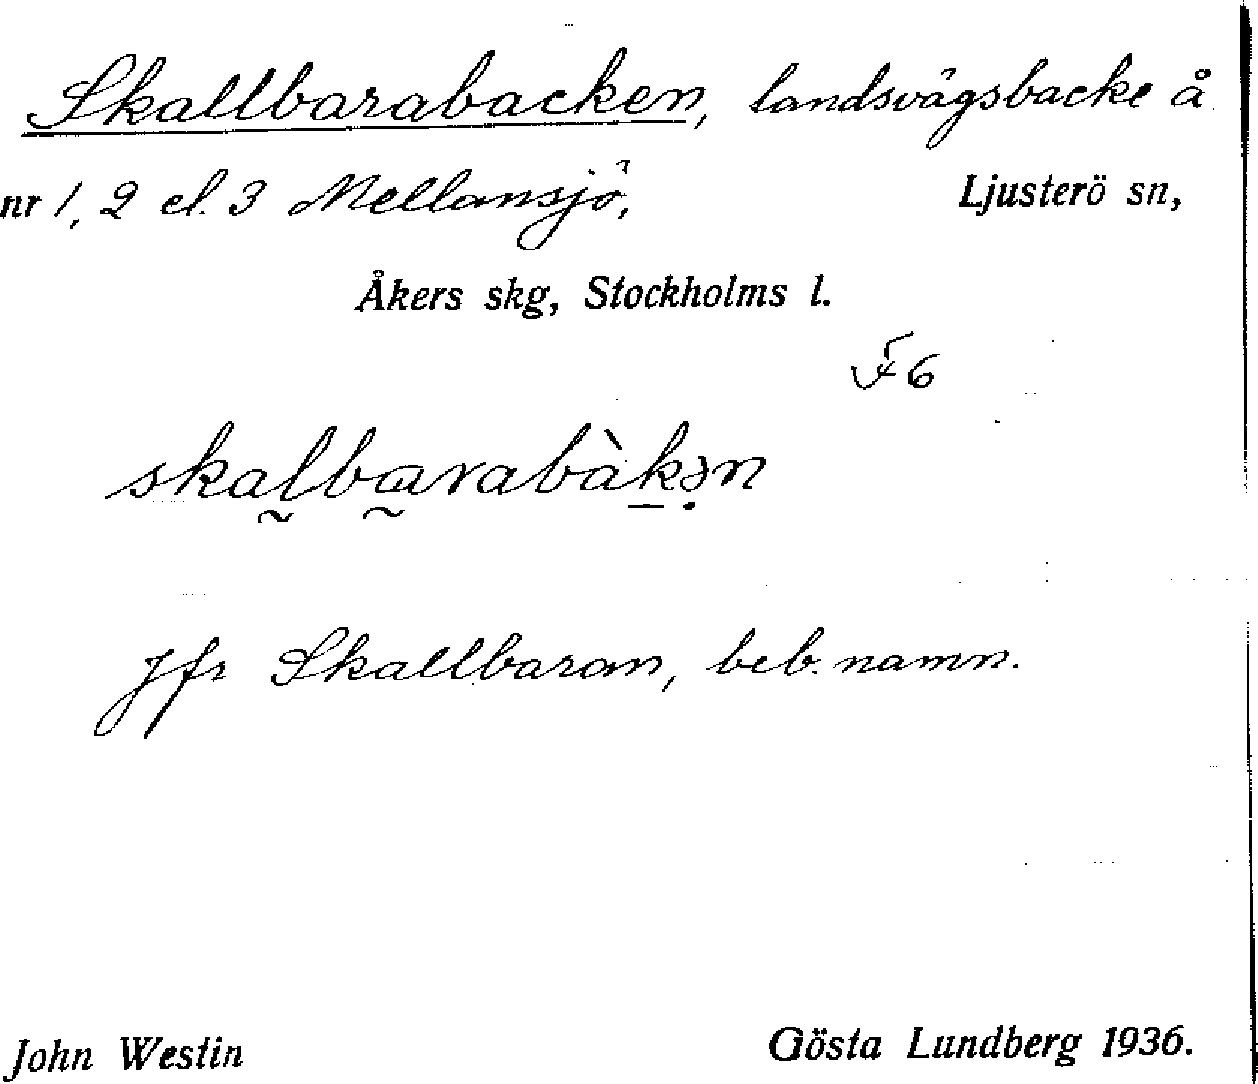 Skallbarabacken, landsvägsbacke å
nr 1, 2 el. 3 Mellansjö, Ljusterö sn,
Åkers skg, Stockholms l.
F6
skalbarabàkən
Jfr Skallbaran, beb. namn.
John Westin Gösta Lundberg 1936.